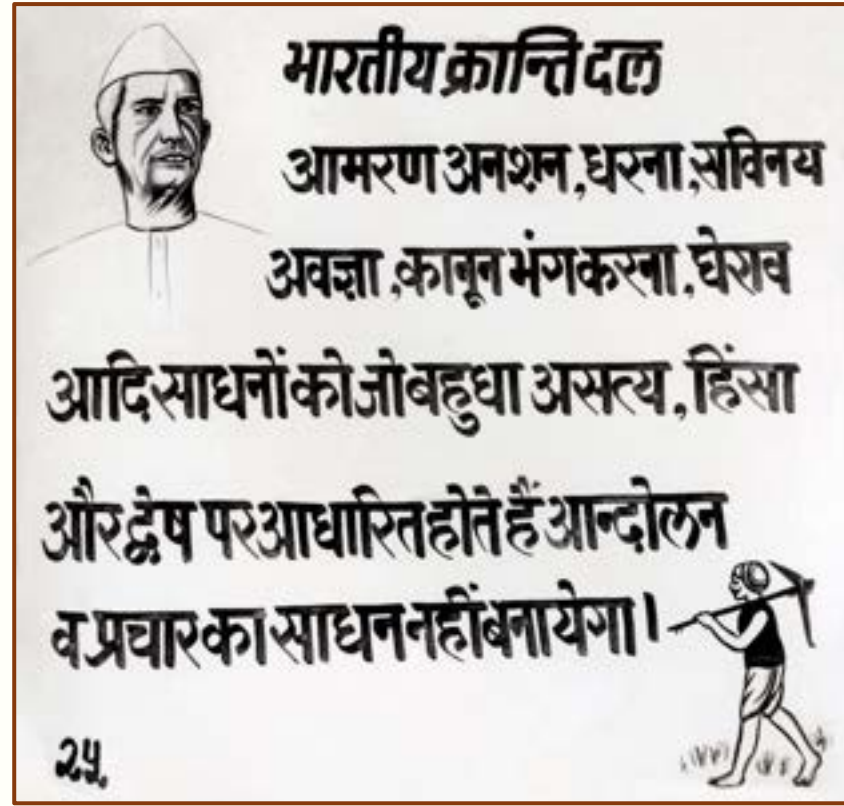 भारतीय क्रान्ति दल
आमरण अनशन, धरना, सविनय
अवज्ञा, कानून भंग करना, घेराव
आदि साधनों को जो बहुधा असत्य, हिंसा
और द्वेष पर आधारित होते हैं आन्दोलन
व प्रचार का साधन नहीं बनायेगा।
२५.